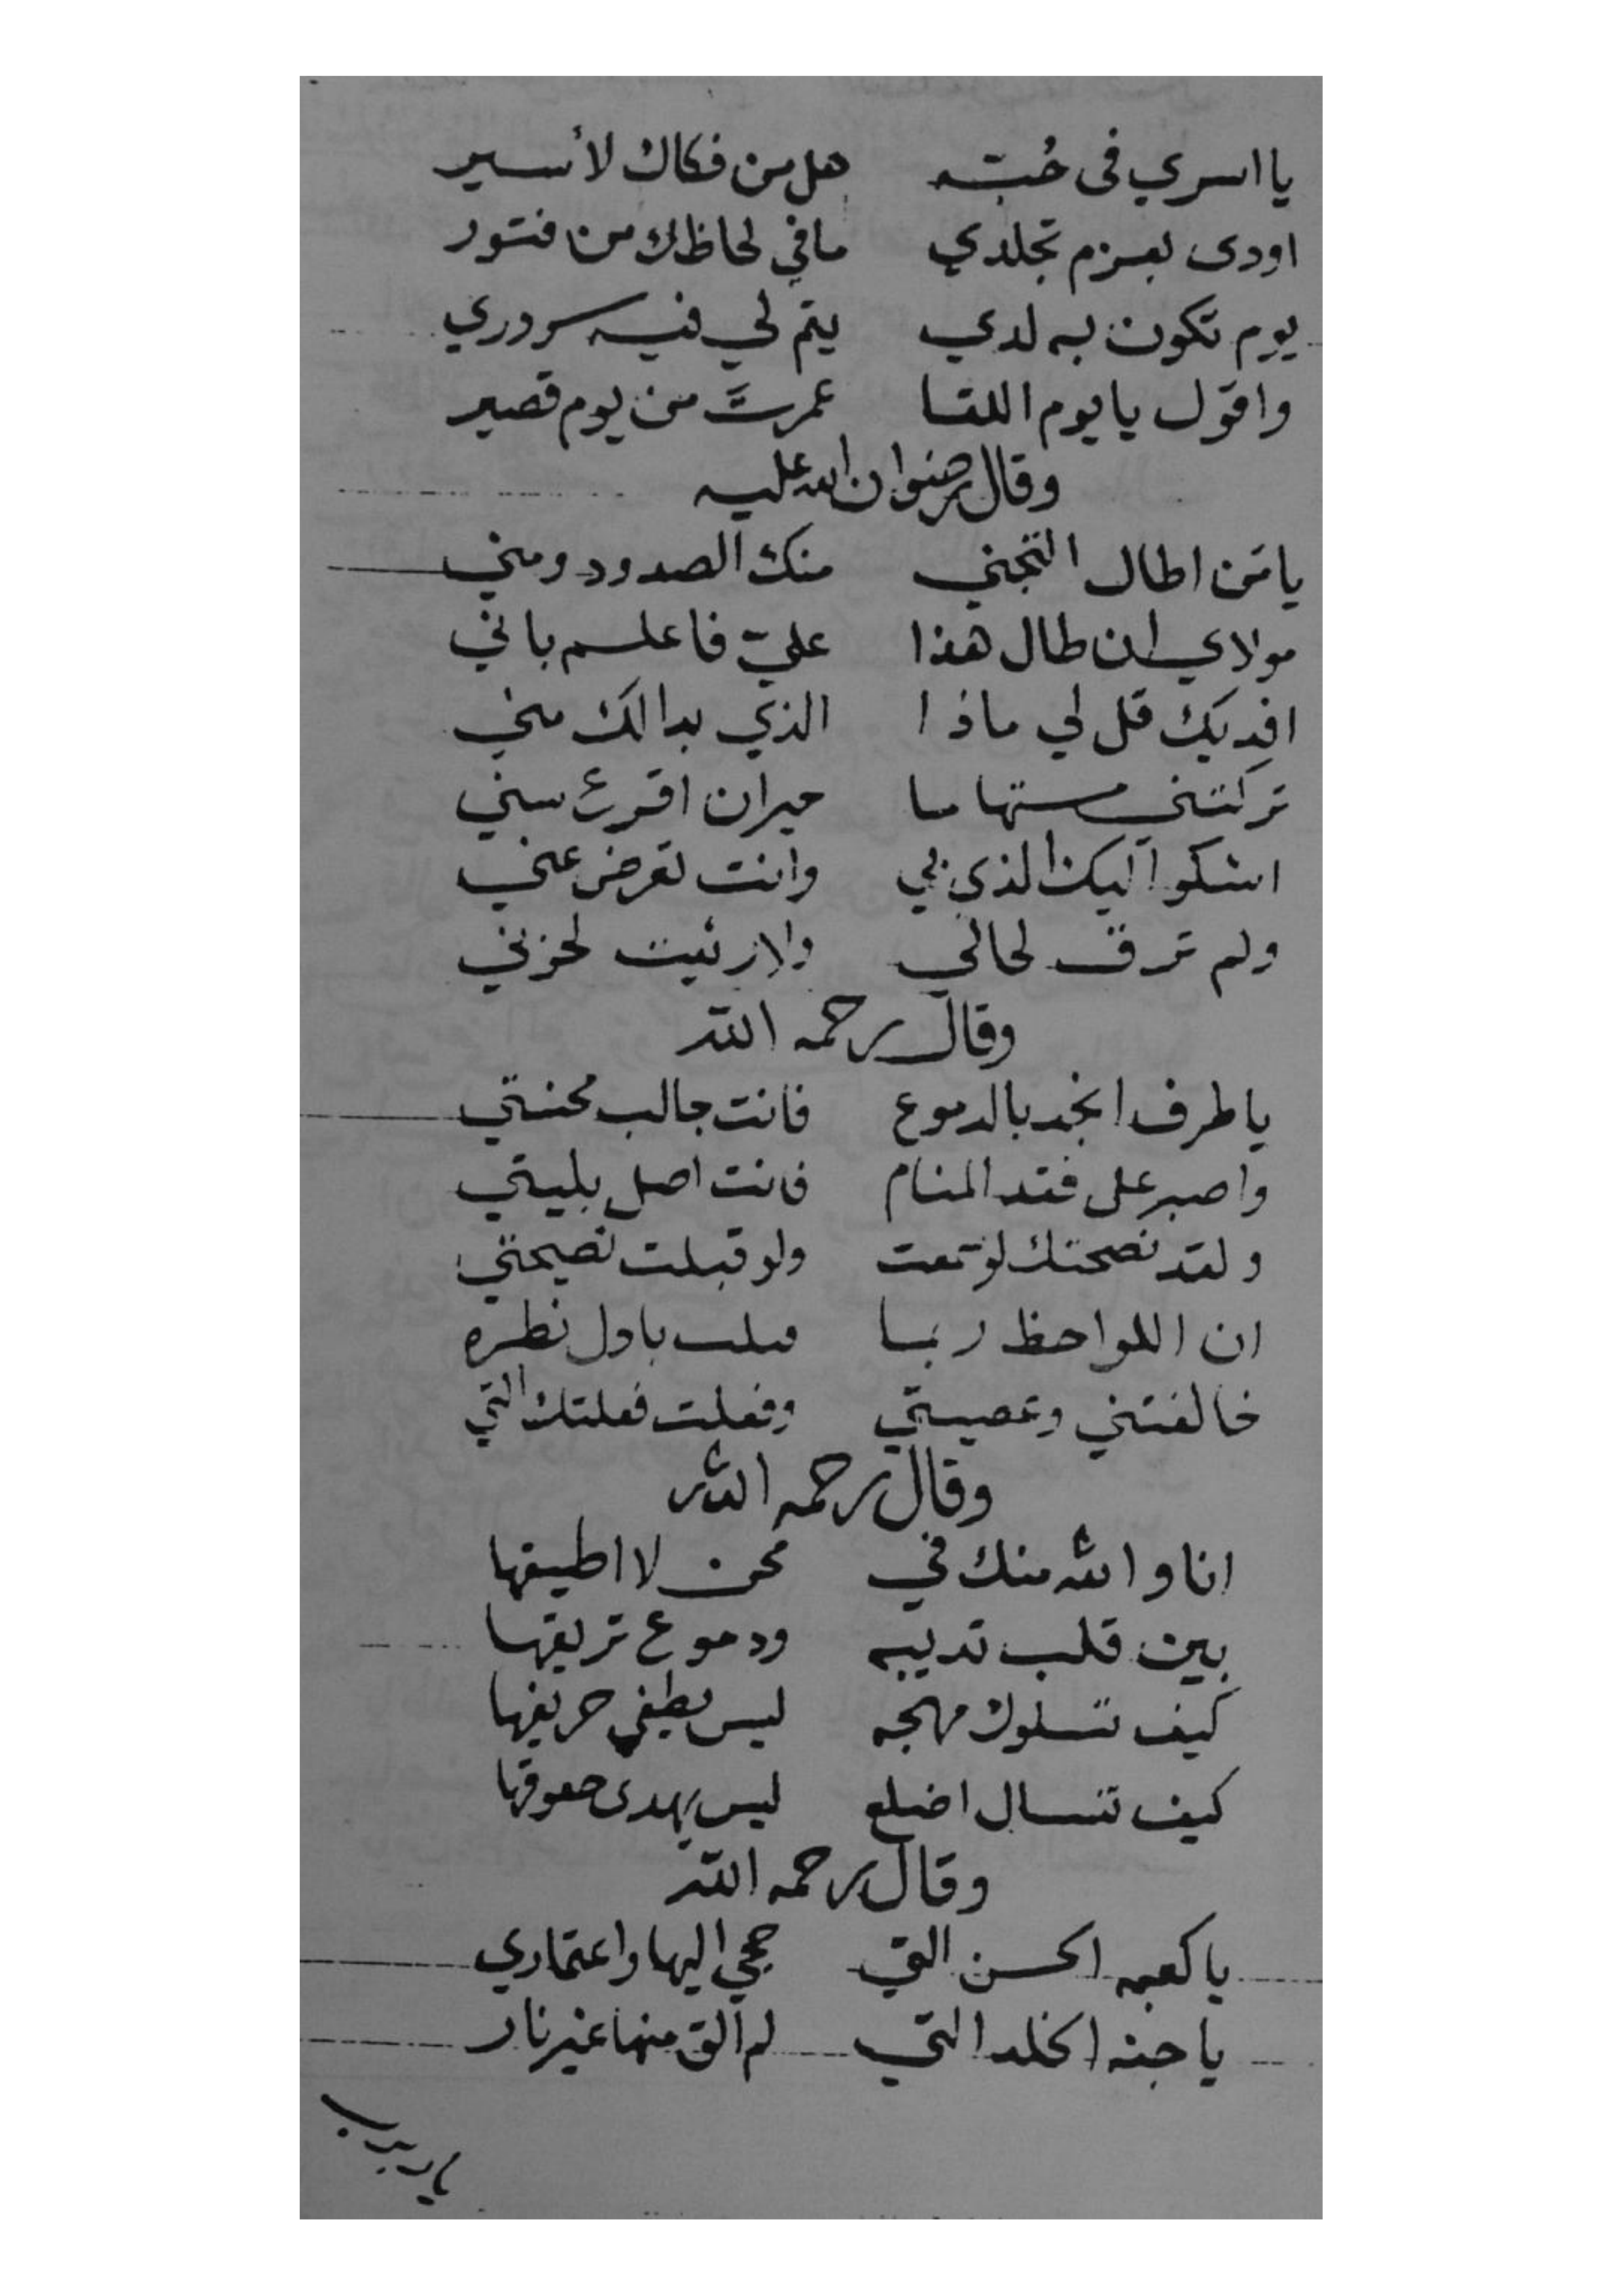 يا اسري فى حُبّه هل من فكاك لأسير
اودى بعزم تجلدي ما في لحاظك من فتور
يوم تكون به لدي يتم لي فيه سروري
واقول يا يوم اللقا عمرتَ من يوم قصير
وقال رضوان الله عليه
يا مَن اطال التجني منك الصدود ومني
مولاي ان طال هذا عليّ فاعلم باني
افديك قل لي ماذا الذي بدا لك مني
تركتني مستهاما حيران اقرع سني
اشكوا اليك الذي بي وانت تعرض عني
ولم ترق لحالي ولا رثيت لحزني
وقال رحمه الله
يا طرف انجد بالدموع فانت جالب محنتي
واصبر على فقد المنام فانت اصل بليتي
ولقد نصحتك لو سمعت ولو قبلت نصيحتي
ان اللواحظ ربما باول نظره
خالفتني وعصيتي وفعلت فعلتك التي
وقال رحمه الله
انا والله منك في محن لا اطيقها
بين قلب تديبه ودموع تريقها
كيف تسلوك مهجه ليس يطفي حريقها
كيف تنسال اضلع ليس يهدى
وقال رحمه الله
يا كعبه الحسن التي حجي اليها واعتماري
يا جنه الخلد التي لم الق منها غير نار